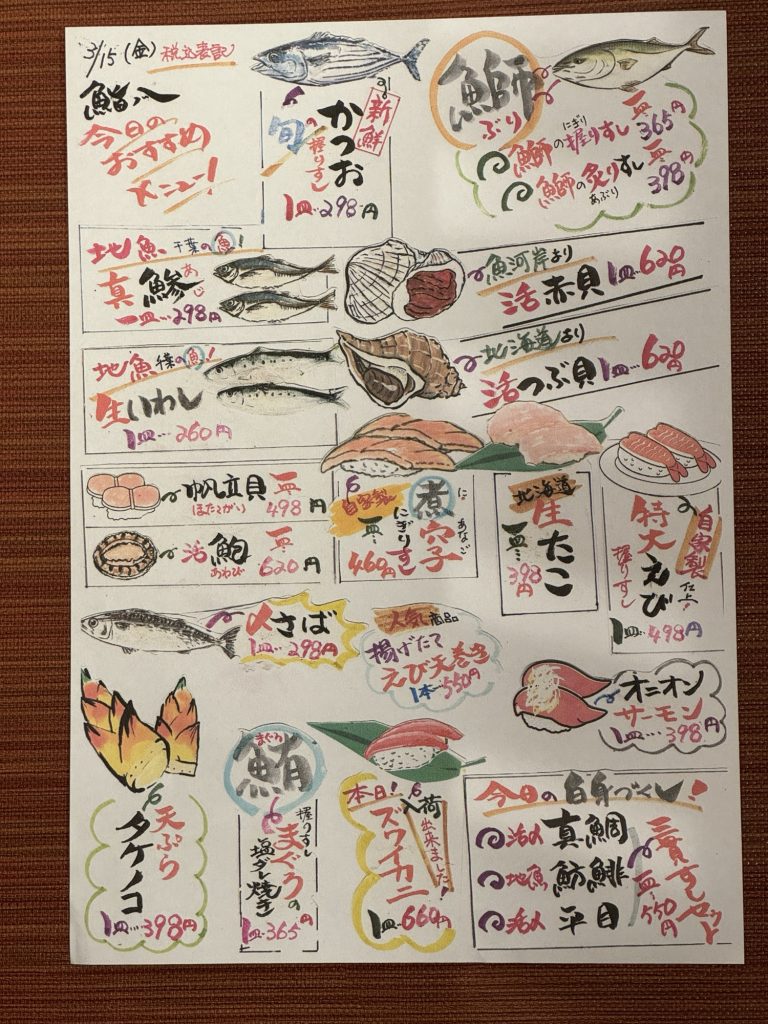 3/15(金)税込表記
鮨八
今日の
おすすめ
メニュー!
新鮮
かつお
旬の握りすし
1皿…298円
鰤
ぶり
鰤の握りすし 一皿 365円
にぎり
鰤の炙りすし 一皿 398円
あぶり
地魚 千葉の魚!
真鯵
あじ
一皿…298円
魚河岸より
活赤貝 1皿…620円
地魚
生いわし
1皿…260円
北海道より
活つぶ貝 1皿…620円
帆立貝 一皿 498円
ほたてがい
活鮑 一皿 620円
あわび
自家製
煮穴子
に あなご
にぎりすし
一皿 460円
北海道
生たこ
一皿 398円
自家製
仕上
特大えび
握りすし
1皿…498円
〆さば
1皿…298円
人気商品
揚げたて
えび天巻き
1本…550円
オニオン
サーモン
1皿…398円
天ぷら
タケノコ
1皿…398円
まぐろ
鮪
握りすし
まぐろの
塩ダレ焼き
1皿…365円
本日!入荷
出来ました!
ズワイカニ
1皿…660円
今日の白身づくし!
活〆 真鯛
地魚 魴鮄
活〆 平目
三貫すしセット
一皿…550円